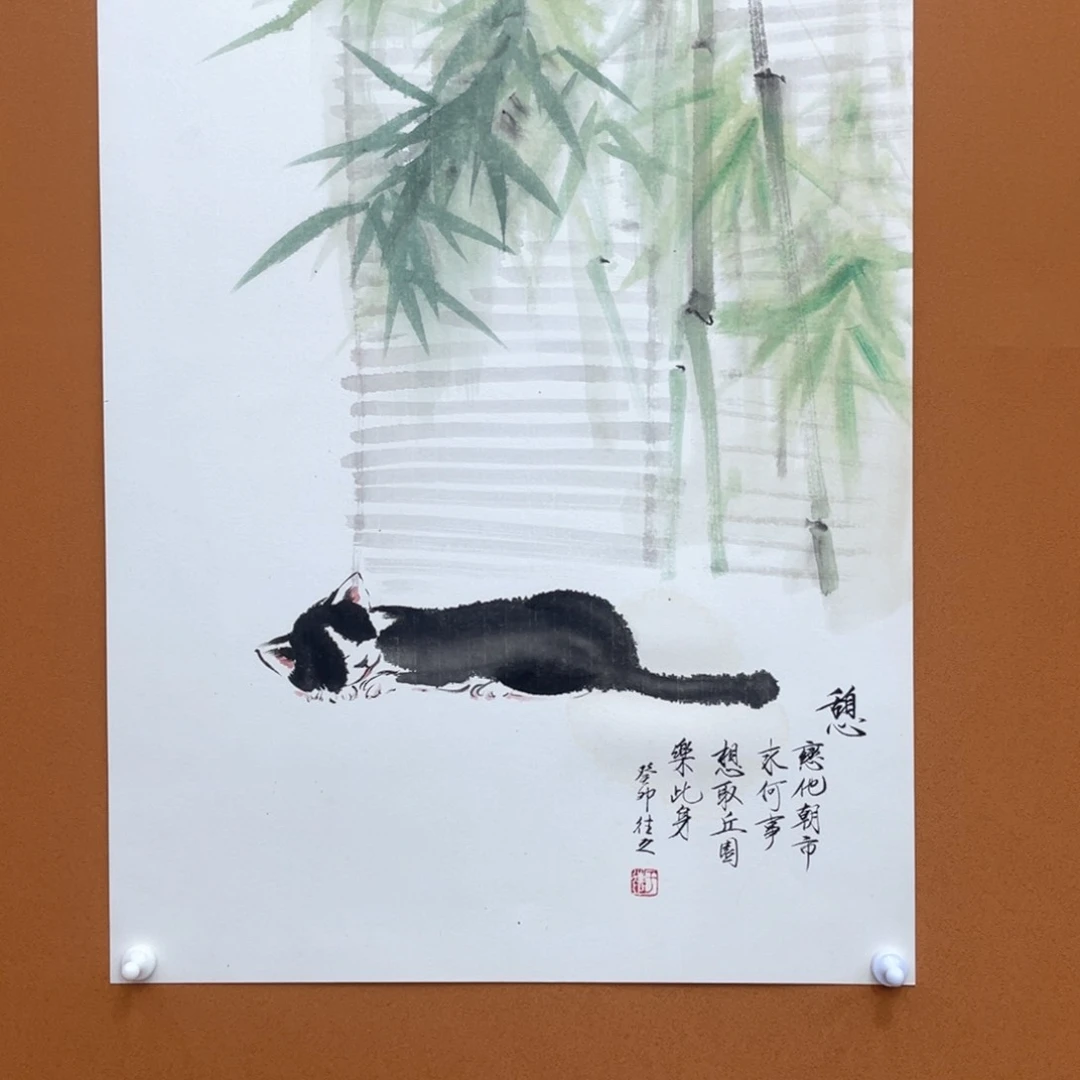 憩
戀他朝市
求何事
想取丘園
樂此身
癸卯徍之